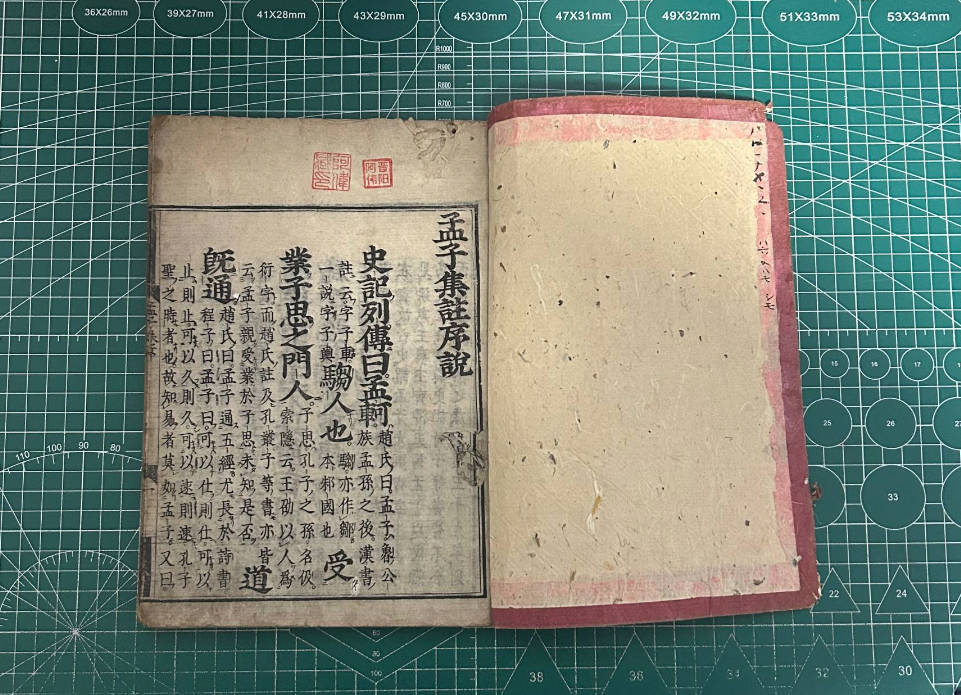 36X26mm
39X27mm
41X28mm
43X29mm
45X30mm
47X31mm
49X32mm
51X33mm
53X34mm
R1000
R900
R800
R700
孟子集註序說
史記列傳曰孟軻趙氏曰孟子魯公族孟孫之後漢書
註云字子車一說字子輿騶人也騶亦作鄒本邾國也受
業子思之門人子思孔子之孫名伋索隱云王劭以人為
衍字而趙氏註及孔叢子等書亦皆云孟子親受業於子思未知是否道
旣通趙氏曰孟子通五經尤長於詩書程子曰孟子曰可以仕則仕可以
止則止可以久則久可以速則速孔子聖之時者也故知易者莫如孟子又曰
110
100
90
80
15
16
17
25
26
33
22
24
38
36
34
32
30